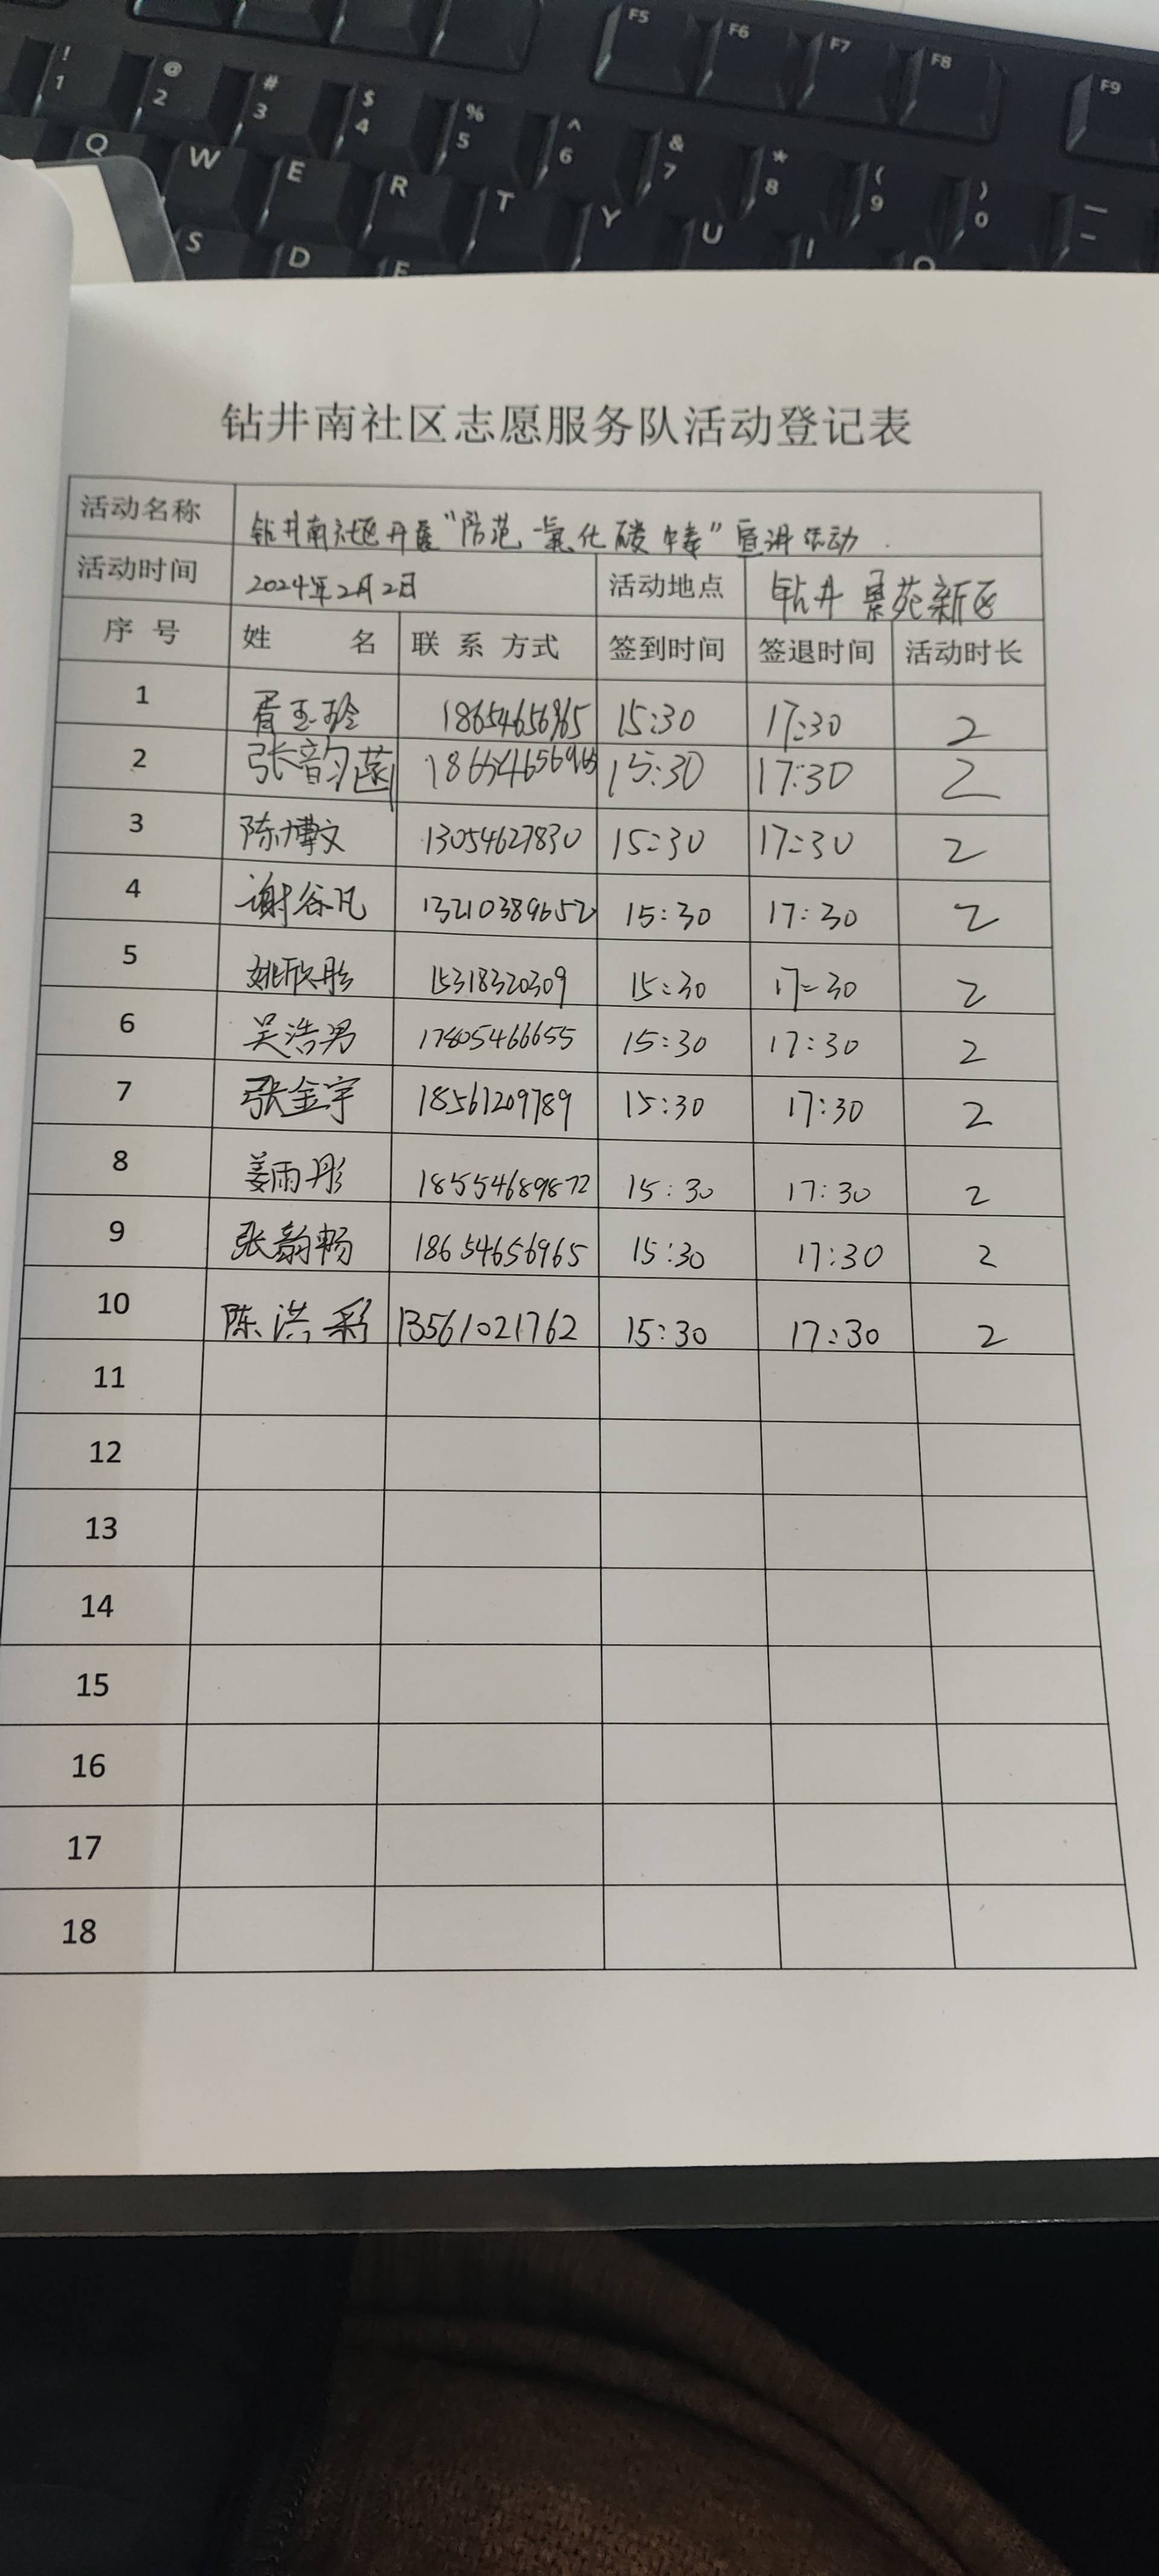 F5 F6 F7 F8 F9
! 1 @ 2 # 3 $ 4 % 5 ^ 6 & 7 * 8 ( 9 ) 0
Q W E R T Y U I O
S D F
钻井南社区志愿服务队活动登记表
活动名称 钻井南社区开展“防范一氧化碳中毒”宣讲活动.
活动时间 2024年2月2日 活动地点 钻井景苑新区
序号 姓名 联系方式 签到时间 签退时间 活动时长
1 胥玉玲 18654656965 15:30 17:30 2
2 张韵菡 18654656965 15:30 17:30 2
3 陈博文 13054627830 15:30 17:30 2
4 谢谷凡 13210389652 15:30 17:30 2
5 姚欣彤 15318320309 15:30 17:30 2
6 吴浩男 17805466655 15:30 17:30 2
7 张金宇 18561209789 15:30 17:30 2
8 姜雨彤 18554689872 15:30 17:30 2
9 张韵畅 18654656965 15:30 17:30 2
10 陈洪彩 13561021762 15:30 17:30 2
11
12
13
14
15
16
17
18